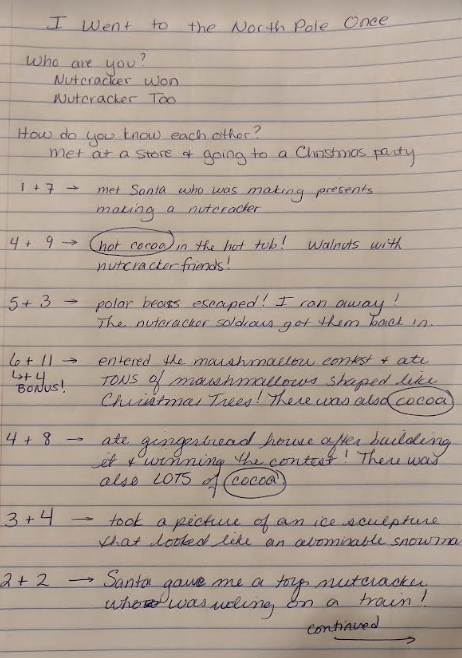 I Went to the North Pole Once
Who are you?
Nutcracker Won
Nutcracker Too
How do you know each other?
met at a store + going to a Christmas party
1 + 7 → met Santa who was making presents
making a nutcracker
4 + 9 → hot cocoa in the hot tub! Walnuts with
nutcracker friends!
5 + 3 → polar bears escaped! I ran away!
The nutcracker soldiars got them back in.
6 + 11 → entered the marshmallow contest + ate
4+4 TONS of marshmallows shaped like
BONUS! Christmas Trees! There was also cocoa
4 + 8 → ate gingerbread house after building
it + winning the contest! There was
also LOTS of cocoa
3 + 4 → took a picture of an ice sculpture
that looked like an abominable snowma
2 + 2 → Santa gave me a toy nutcracker
who was riding on a train!
continued →